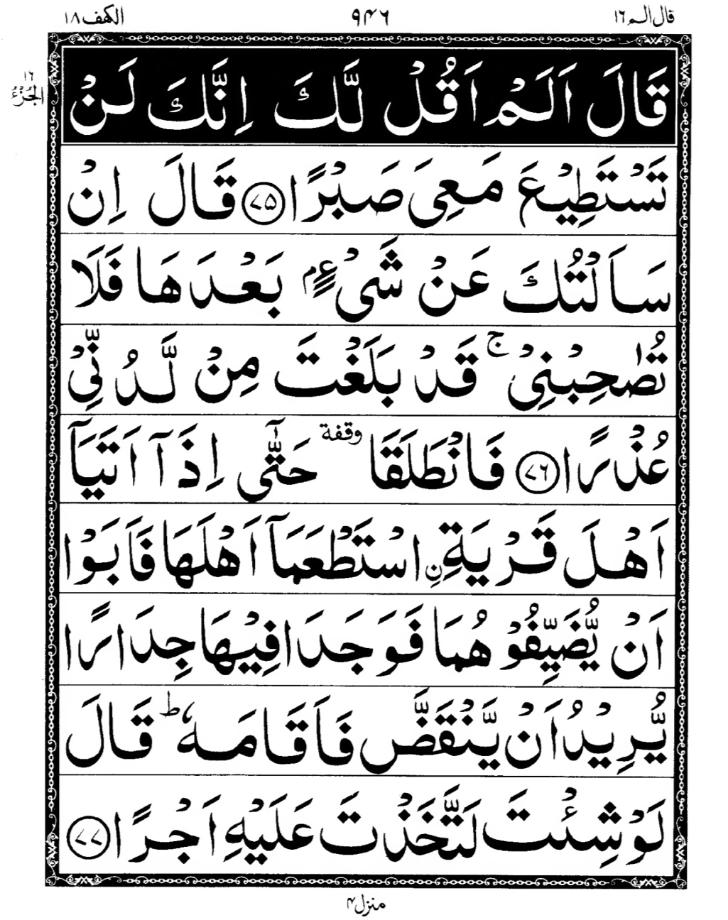 الكهف ١٨ ٩٤٦ قال الم ١٦
١٦
الجزء
قَالَ اَلَمْ اَقُلْ لَّكَ اِنَّكَ لَنْ
تَسْتَطِيْعَ مَعِىَ صَبْرًا ﴿٧٥﴾ قَالَ اِنْ
سَاَلْتُكَ عَنْ شَىْءٍۭ بَعْدَهَا فَلَا
تُصٰحِبْنِىْ ۚ قَدْ بَلَغْتَ مِنْ لَّدُنِّىْ
عُذْرًا ﴿٧٦﴾ فَانْطَلَقَا وقفة حَتّٰٓى اِذَآ اَتَيَآ
اَهْلَ قَرْيَةِ ِۨاسْتَطْعَمَآ اَهْلَهَا فَاَبَوْا
اَنْ يُّضَيِّفُوْهُمَا فَوَجَدَا فِيْهَا جِدَارًا
يُّرِيْدُ اَنْ يَّنْقَضَّ فَاَقَامَهٗ ؕ قَالَ
لَوْ شِئْتَ لَتَّخَذْتَ عَلَيْهِ اَجْرًا ﴿٧٧﴾
منزل ٤